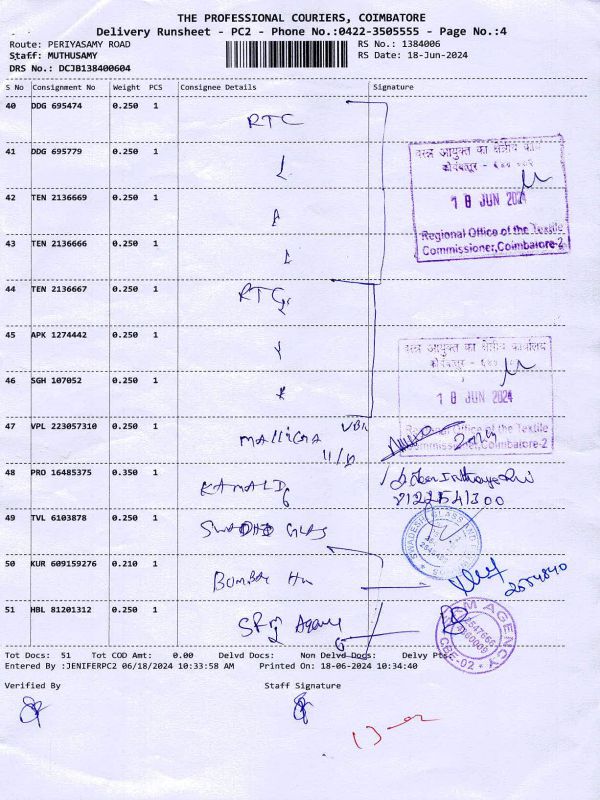 THE PROFESSIONAL COURIERS, COIMBATORE
Delivery Runsheet - PC2 - Phone No.:0422-3505555 - Page No.:4
Route: PERIYASAMY ROAD RS No.: 1384006
Staff: MUTHUSAMY RS Date: 18-Jun-2024
DRS No.: DCJB138400604
S No Consignment No Weight PCS Consignee Details Signature
40 DDG 695474 0.250 1 RTC
41 DDG 695779 0.250 1
वस्त्र आयुक्त का क्षेत्रीय
42 TEN 2136669 0.250 1
18 JUN 2024
43 TEN 2136666 0.250 1
Regional Office of the Textile
Commissioner, Coimbatore-2
44 TEN 2136667 0.250 1 RTC
45 APK 1274442 0.250 1
वस्त्र आयुक्त का क्षेत्रीय कार्यालय
46 SGH 107052 0.250 1
18 JUN 2024
47 VPL 223057310 0.250 1
Regional Office of the Textile
Commissioner, Coimbatore-2
48 PRO 16485375 0.350 1
49 TVL 6103878 0.250 1
SWADESHI GLASS AND
50 KUR 609159276 0.210 1 BOMBAY
51 HBL 81201312 0.250 1
AGENCY
CBE-02
Tot Docs: 51 Tot COD Amt: 0.00 Delvd Docs: Non Delvd Docs: Delvy Pts:
Entered By :JENIFERPC2 06/18/2024 10:33:58 AM Printed On: 18-06-2024 10:34:40
Verified By Staff Signature